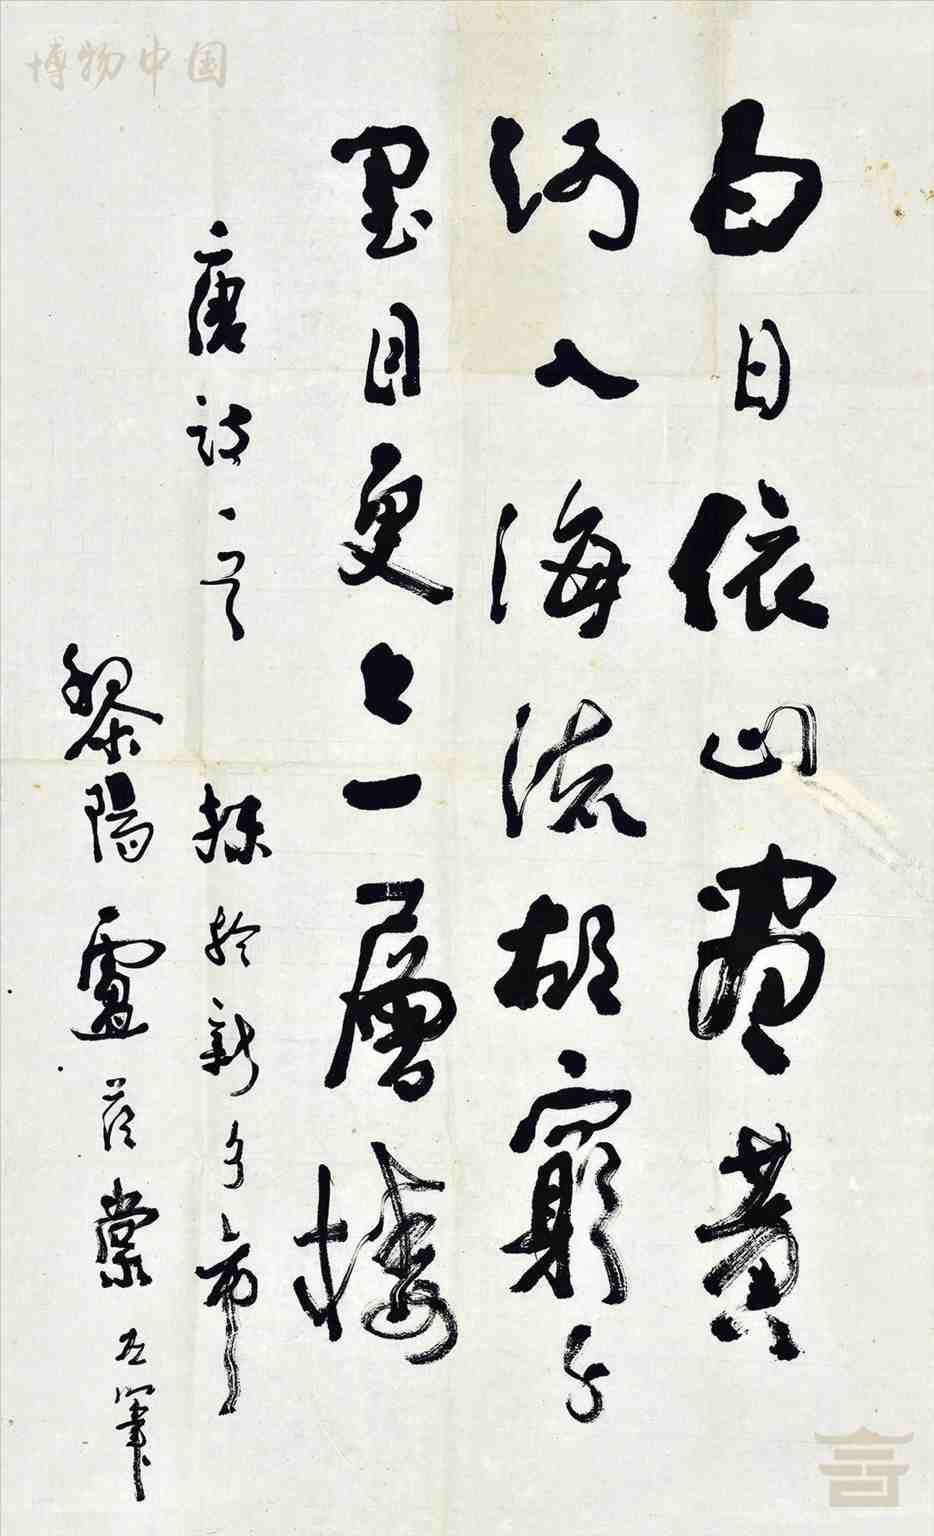 白日依山盡黃
河入海流欲窮千
里目更上一層樓
唐詩一首 錄於新鄉市
黎陽盧 棠左筆
博物中国